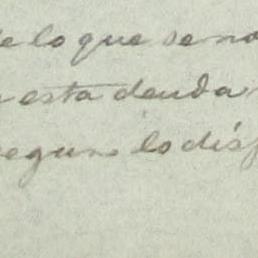 de lo que se no
esta deuda
segun lo dis